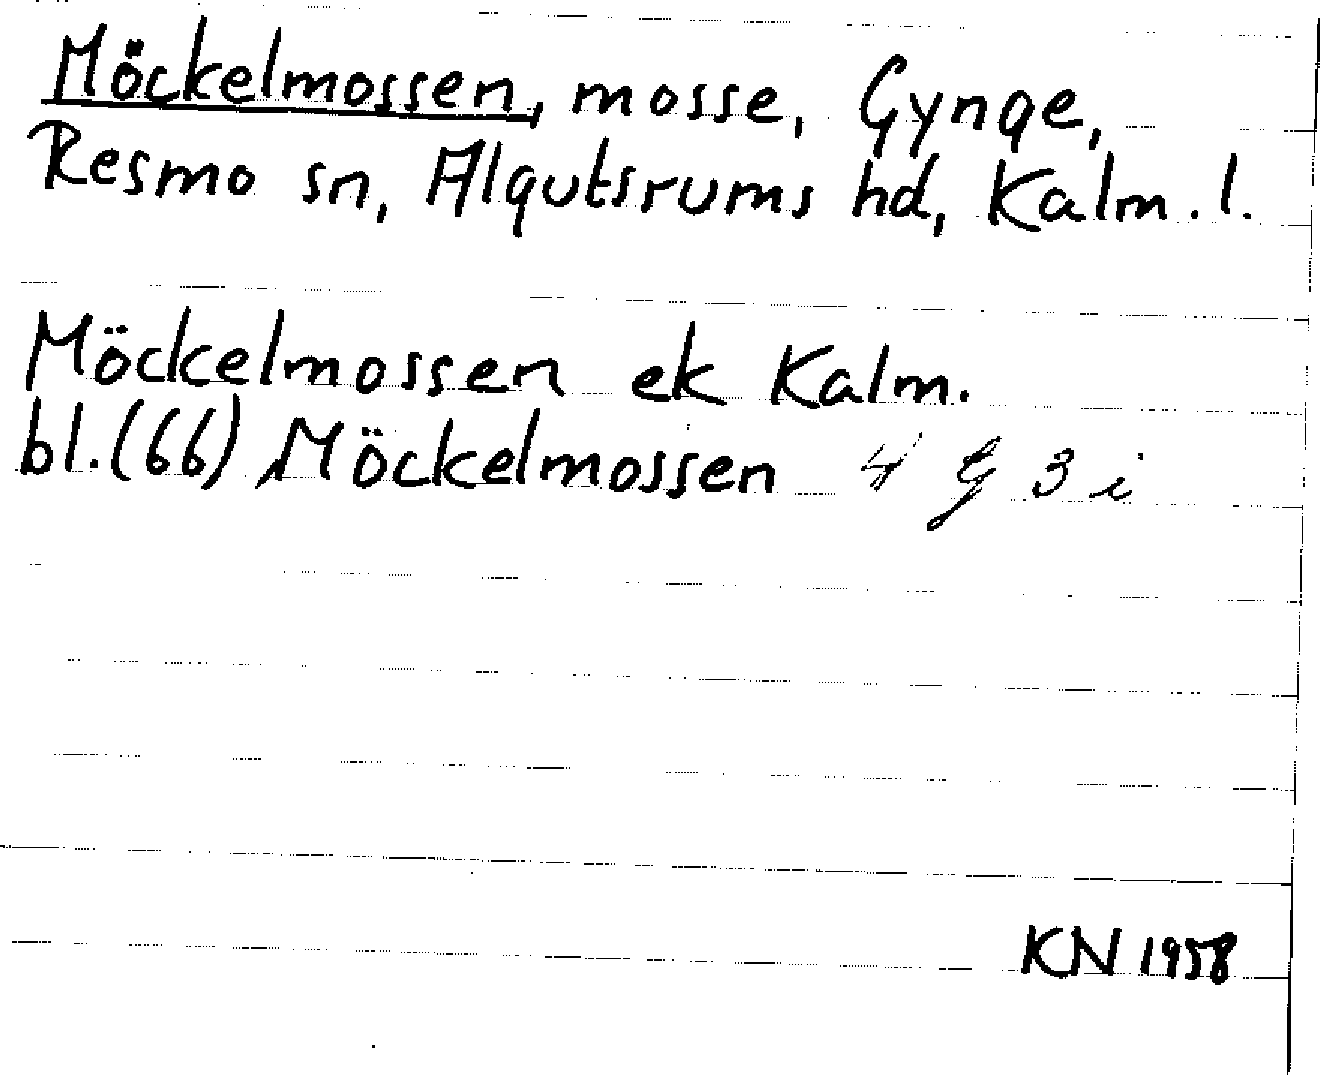 Möckelmossen, mosse, Gynge,
Resmo sn, Algutsrums hd, Kalm. l.
Möckelmossen ek Kalm.
bl.(66) Möckelmossen 4 G 3 i
KN 1958